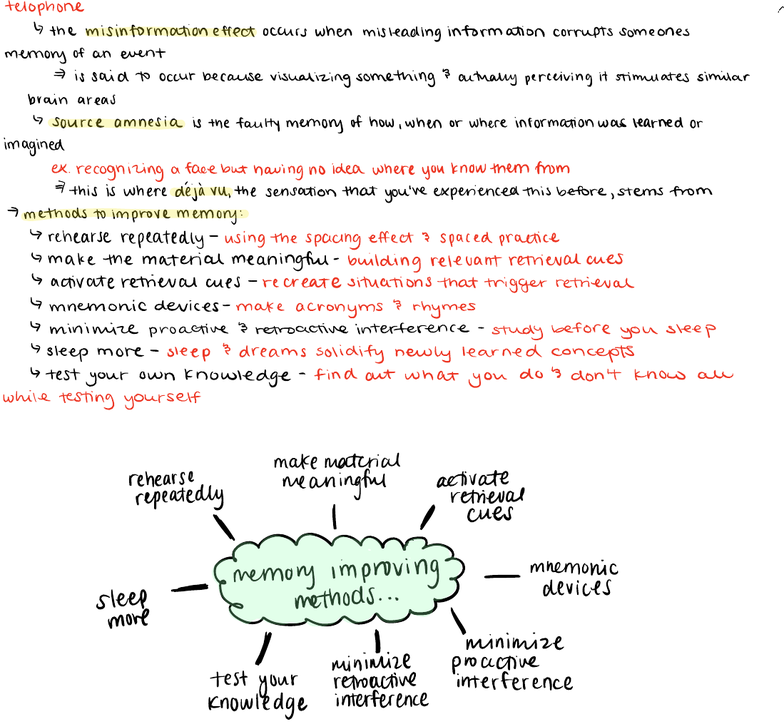 telophone
↳ the misinformation effect occurs when misleading information corrupts someones
memory of an event
⇒ is said to occur because visualizing something & actually perceiving it stimulates similar
brain areas
↳ source amnesia is the faulty memory of how, when or where information was learned or
imagined
ex. recognizing a face but having no idea where you know them from
⇒ this is where déjà vu, the sensation that you've experienced this before, stems from
→ methods to improve memory:
↳ rehearse repeatedly - using the spacing effect & spaced practice
↳ make the material meaningful - building relevant retrieval cues
↳ activate retrieval cues - recreate situations that trigger retrieval
↳ mnemonic devices - make acronyms & rhymes
↳ minimize proactive & retroactive interference - study before you sleep
↳ sleep more - sleep & dreams solidify newly learned concepts
↳ test your own knowledge - find out what you do & don't know all
while testing yourself
make material
meaningful
rehearse
repeatedly
activate
retrieval
cues
memory improving
methods...
mnemonic
devices
sleep
more
minimize
proactive
interference
test your
knowledge
minimize
retroactive
interference